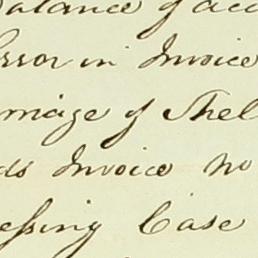 Balance of acc
Error in Invoice
rriage of Shel
ds Invoice no
essing Case